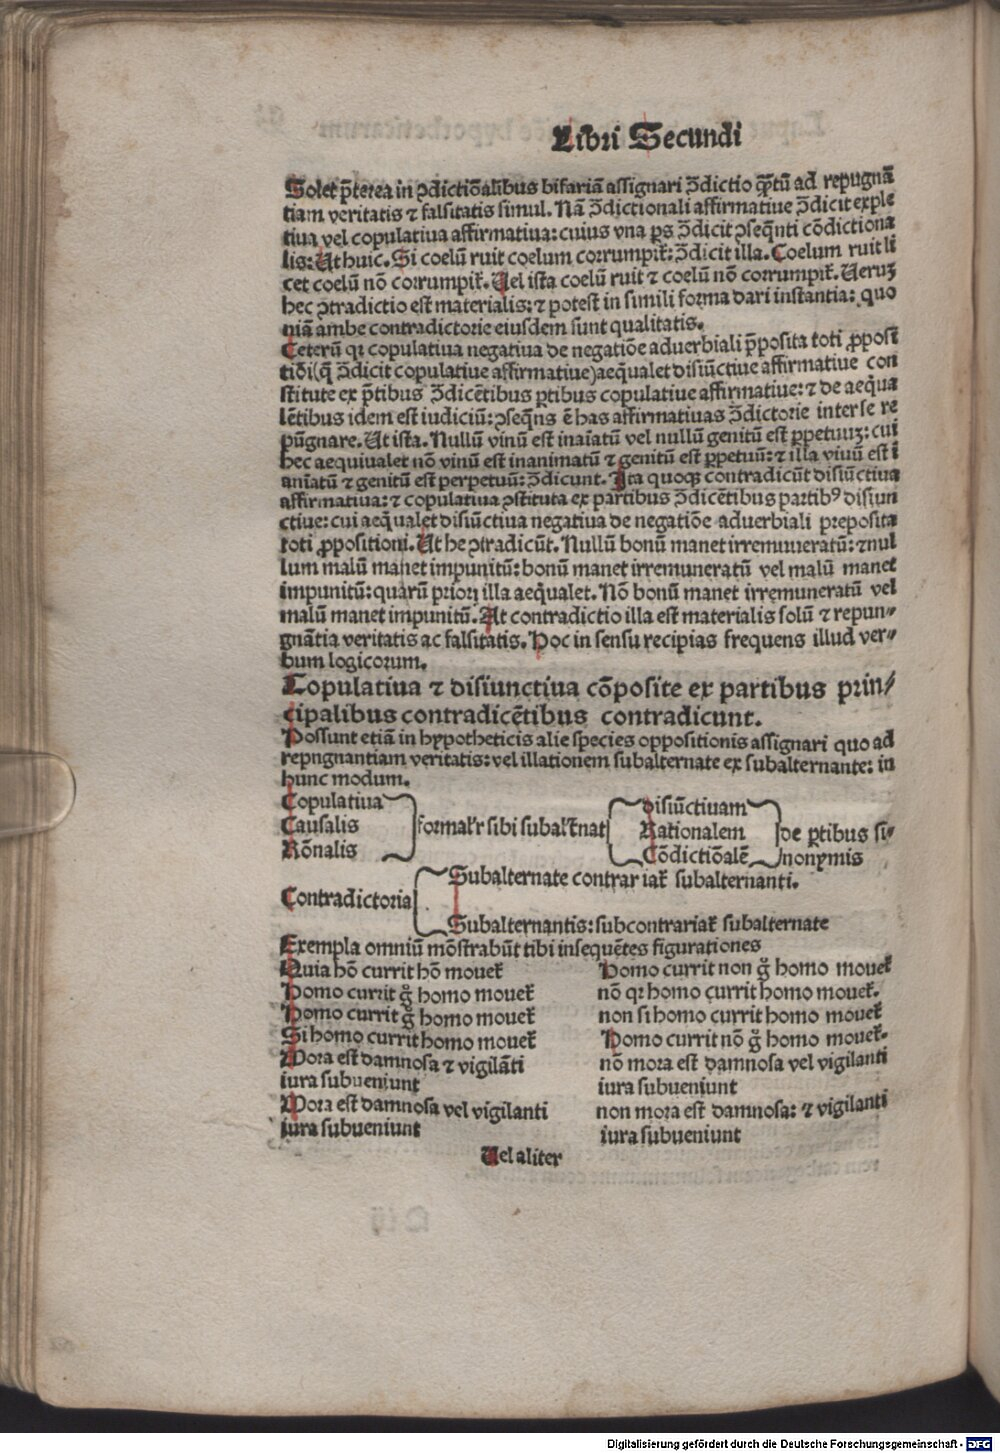 Libri Secundi
Solet p̄terea in ꝯdictiōalibus bifariā assignari ꝯ̄dictio q̄ꝫtū ad repugnā
tiam veritatis ⁊ falsitatis simul. Nā ꝯ̄dictionali affirmatiue ꝯ̄dicit exple
tiua vel copulatiua affirmatiua: cuius vna ꝑs ꝯ̄dicit ꝯseq̄nti cōdictiona
lis: Ut huic. Si coelū ruit coelum corrumpit̄: ꝯ̄dicit illa. Coelum ruit li
cet coelū nō corrumpit̄. Uel ista coelū ruit ⁊ coelū nō corrumpit̄. Ueruꝫ
hec ꝯtradictio est materialis: ⁊ potest in simili forma dari instantia: quo
niā ambe contradictorie eiusdem sunt qualitatis.
Ceterū qꝛ copulatiua negatiua de negatiōe aduerbiali p̄posita toti ꝓposi
tiōi (q̄ ꝯ̄dicit copulatiue affirmatiue) aeq̄ualet disiūctiue affirmatiue con
stitute ex p̄tibus ꝯ̄dicētibus ꝑtibus copulatiue affirmatiue: ⁊ de aeq̄ua
lētibus idem est iudiciū: ꝯseq̄ns ē has affirmatiuas ꝯ̄dictorie inter se re
pūgnare. Ut ista. Nullū vinū est inaiatū vel nullū genitū est ꝑpetuuꝫ: cui
hec aequiualet nō vinū est inanimatū ⁊ genitū est ꝑpetuū: ⁊ illa viuū est ī
aniatū ⁊ genitū est perpetuū: ꝯ̄dicunt. Ita quoqꝫ contradicūt disiūctiua
affirmatiua: ⁊ copulatiua ꝯstituta ex partibus ꝯ̄dicētibus partibꝰ disiun
ctiue: cui aeq̄ualet disiūctiua negatiua de negatiōe aduerbiali preposita
toti ꝓpositioni. Ut he ꝯtradicūt. Nullū bonū manet irremuneratū: ⁊ nul
lum malū manet impunitū: bonū manet irremuneratū vel malū manet
impunitū: quarū priori illa aeq̄ualet. Nō bonū manet irremuneratū vel
malū manet impunitū. At contradictio illa est materialis solū ⁊ repun-
gnātia veritatis ac falsitatis. Hoc in sensu recipias frequens illud ver-
bum logicorum.
Copulatiua ⁊ disiunctiua cōposite ex partibus prin-
cipalibus contradicētibus contradicunt.
Possunt etiā in hypotheticis alie species oppositionis assignari quo ad
repngnantiam veritatis: vel illationem subalternate ex subalternante: in
hunc modum.
Copulatiua
Causalis
Rōnalis
formal'r sibi subalt̄nat
disiūctiuam
Rationalem
Cōdictiōalē
de ꝑtibus si-
nonymis
Contradictoria
Subalternate contrariat̄ subalternanti.
Subalternantis: subcontrariat̄ subalternate
Exempla omniū mōstrabūt tibi insequētes figurationes
Quia hō currit hō mouet̄
Homo currit non g̊ homo mouet̄
Homo currit g̊ homo mouet̄
nō qꝛ homo currit homo mouet̄.
Homo currit g̊ homo mouet̄
non si homo currit homo mouet̄
Si homo currit homo mouet̄
Homo currit nō g̊ homo mouet̄.
Mora est damnosa ⁊ vigilāti
iura subueniunt
nō mora est damnosa vel vigilanti
iura subueniunt
Mora est damnosa vel vigilanti
iura subueniunt
non mora est damnosa: ⁊ vigilanti
iura subueniunt
Uel aliter
Digitalisierung gefördert durch die Deutsche Forschungsgemeinschaft - DFG